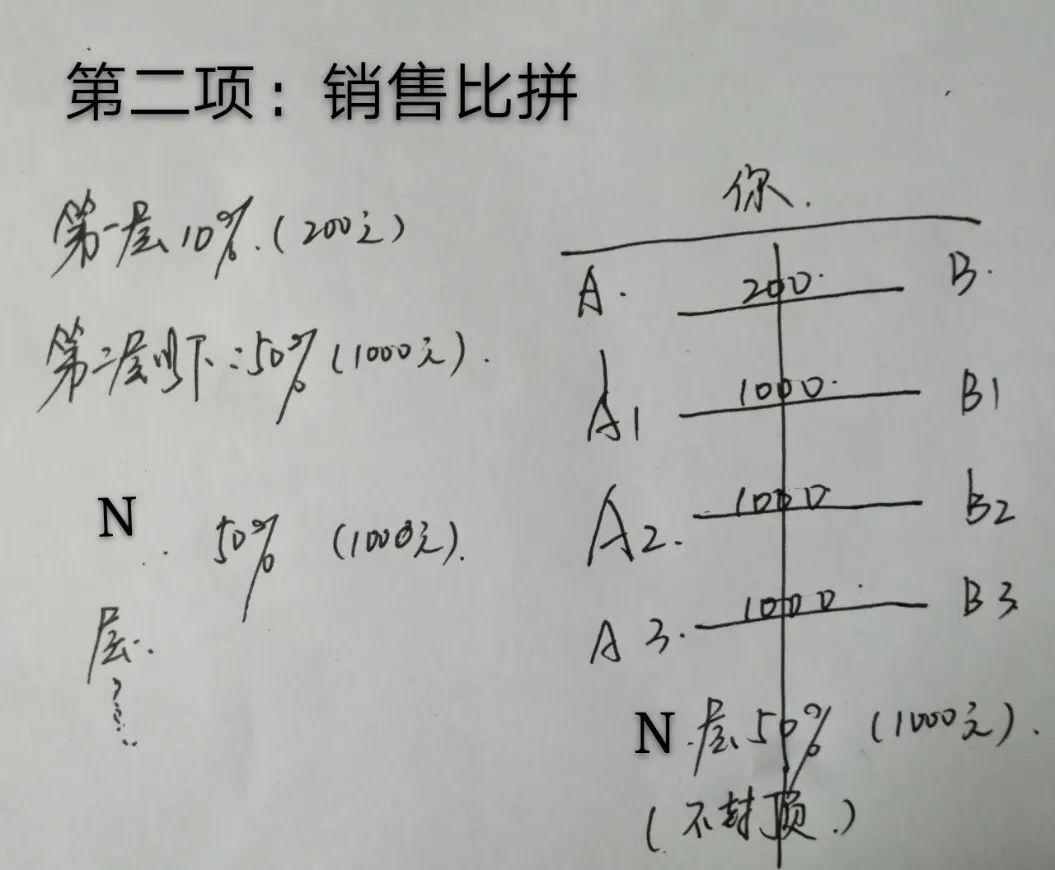 第二项：销售比拼
你.
第一层10%.(200元)
A. 200. B.
第二层以下:50%(1000元).
A1 1000. B1
N 50% (1000元).
A2. 1000 B2
层.
A3. 1000 B3
N.层50%(1000元).
(不封顶.)